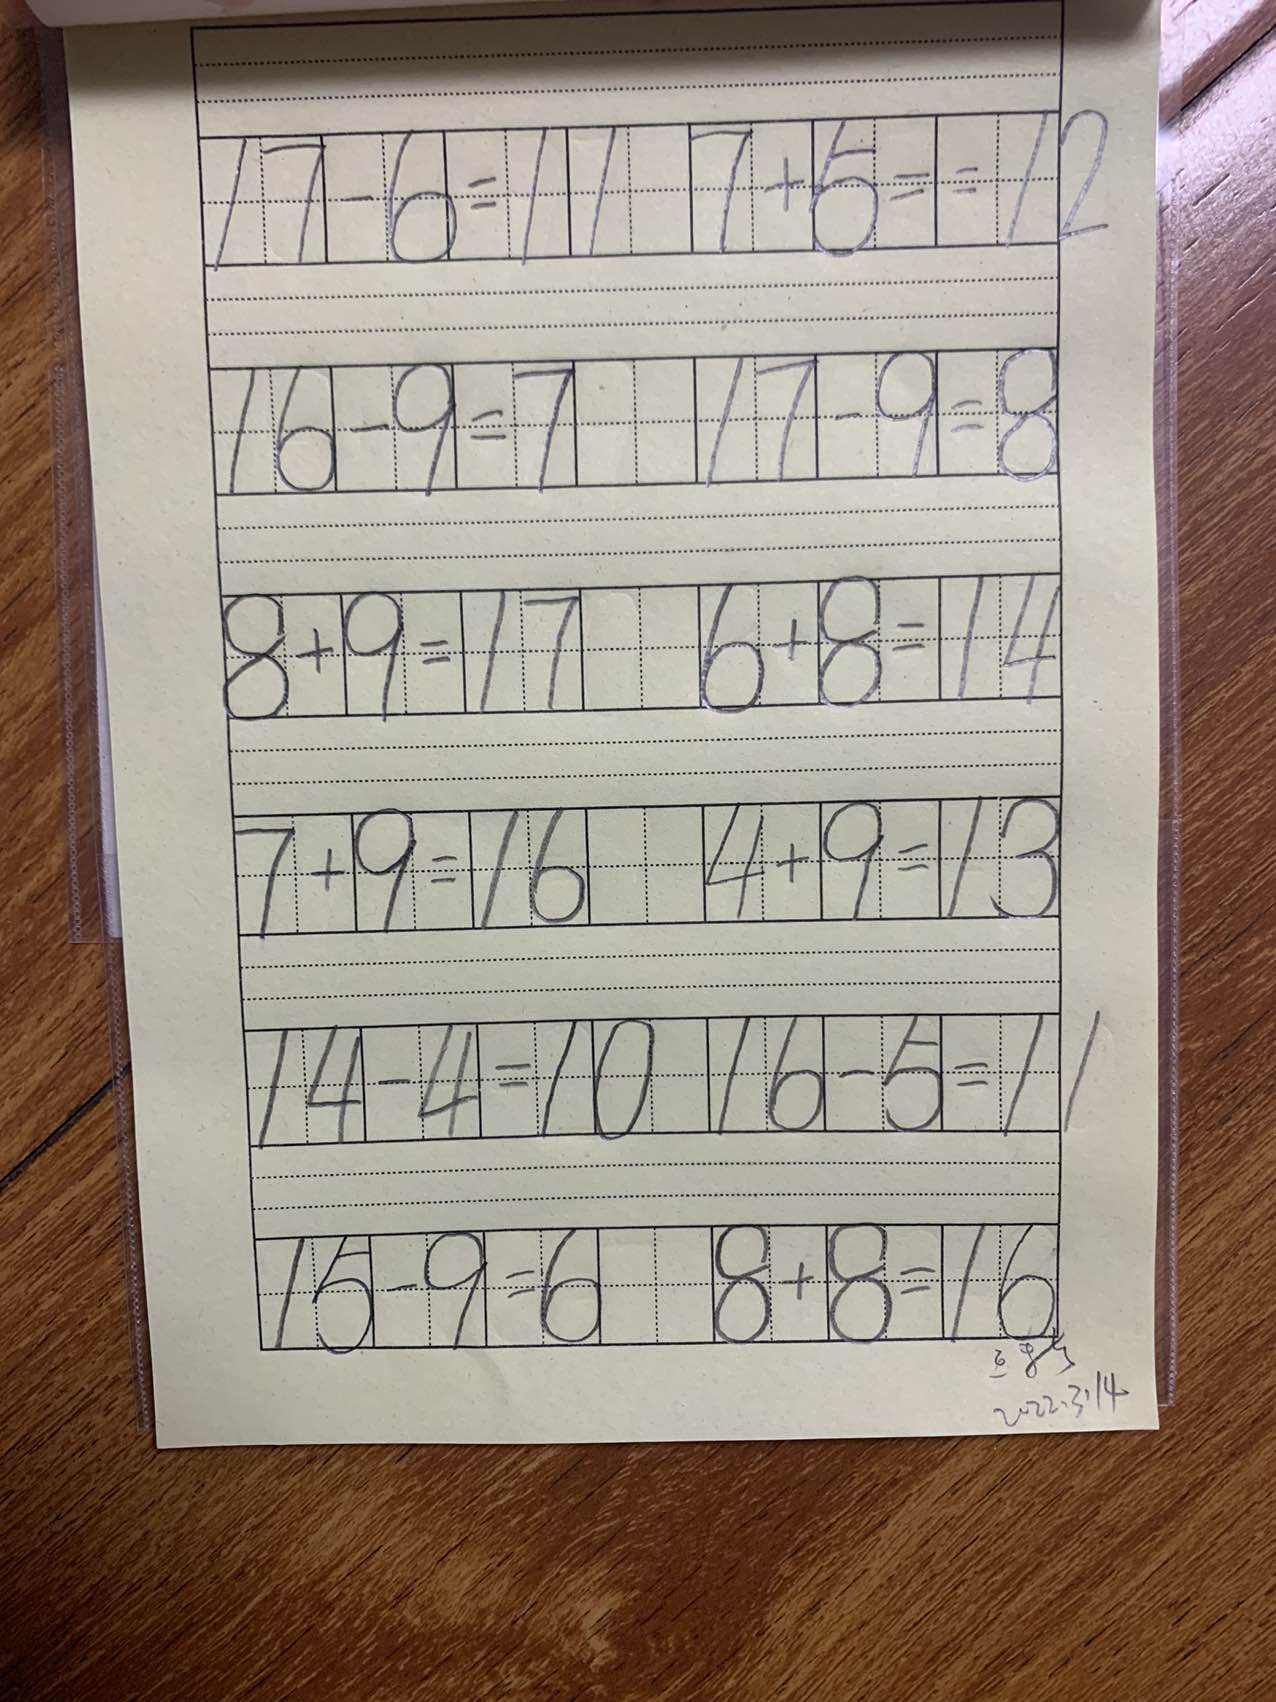 17-6=11 7+5==12
16-9=7 17-9=8
8+9=17 6+8=14
7+9=16 4+9=13
14-4=10 16-5=11
15-9=6 8+8=16
2022.3.14